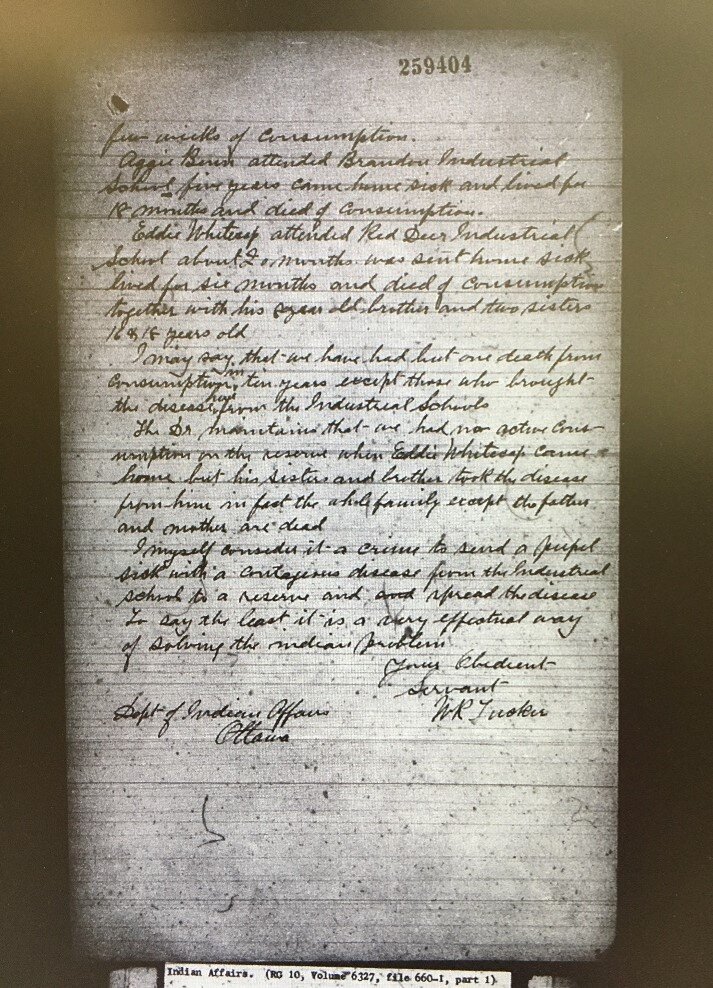 259404
few weeks of Consumption.
Aggie attended Brandon Industrial
School five years came home sick and lived for
18 months and died of Consumption.
Eddie Whitecap attended Red Deer Industrial
School about 20 months was sent home sick
lived for six months and died of Consumption
together with his year old brother and two sisters
16 & 18 years old
I may say that we have had but one death from
Consumption in ten years except those who brought
the disease from the Industrial Schools
The Dr. maintains that we had no active Cons-
umption on the reserve when Eddie Whitecap came
home but his sisters and brother took the disease
from him in fact the whole family except the father
and mother are dead
I myself consider it a crime to send a pupil
sick with a contagious disease from the Industrial
school to a reserve and and spread the disease
To say the least it is a very effectual way
of solving the indian problem
Your Obedient
servant
Dept of Indian Affairs
WR Tucker
Ottawa
Indian Affairs. (RG 10, Volume 6327, file 660-1, part 1)